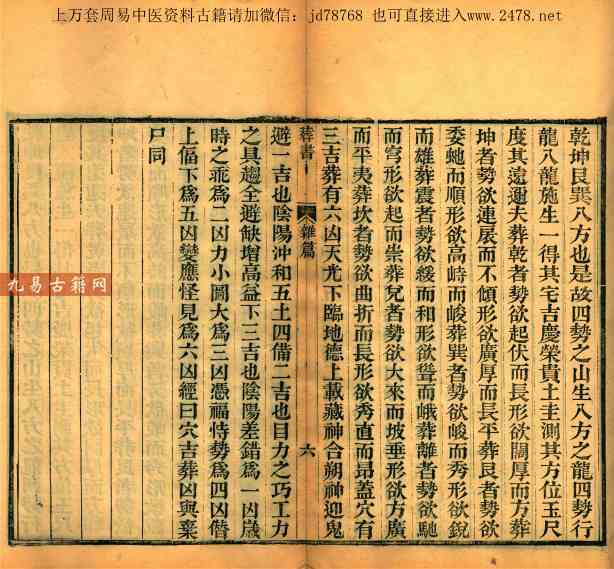 上万套周易中医资料古籍请加微信：jd78768 也可直接进入www.2478.net
乾坤艮巽八方也是故四勢之山生八方之龍四勢行
龍八龍施生一得其宅吉慶榮貴土圭測其方位玉尺
度其遠邇夫葬乾者勢欲起伏而長形欲闊厚而方葬
坤者勢欲連屐而不傾形欲廣厚而長平葬艮者勢欲
委虵而順形欲高峙而峻葬巽者勢欲峻而秀形欲銳
而雄葬震者勢欲緩而和形欲聳而峨葬離者勢欲馳
而穹形欲起而崇葬兌者勢欲大來而坡垂形欲方廣
而平夷葬坎者勢欲曲折而長形欲秀直而昂蓋穴有
三吉葬有六凶天光下臨地德上載藏神合朔神迎鬼
葬書
雜篇
六
避一吉也陰陽沖和五土四備二吉也目力之巧工力
之具趨全避缺增高益下三吉也陰陽差錯爲一凶歲
時之乖爲二凶力小圖大爲三凶憑福恃勢爲四凶僭
上偪下爲五凶變應怪見爲六凶經曰穴吉葬凶與棄
尸同
九易古籍网